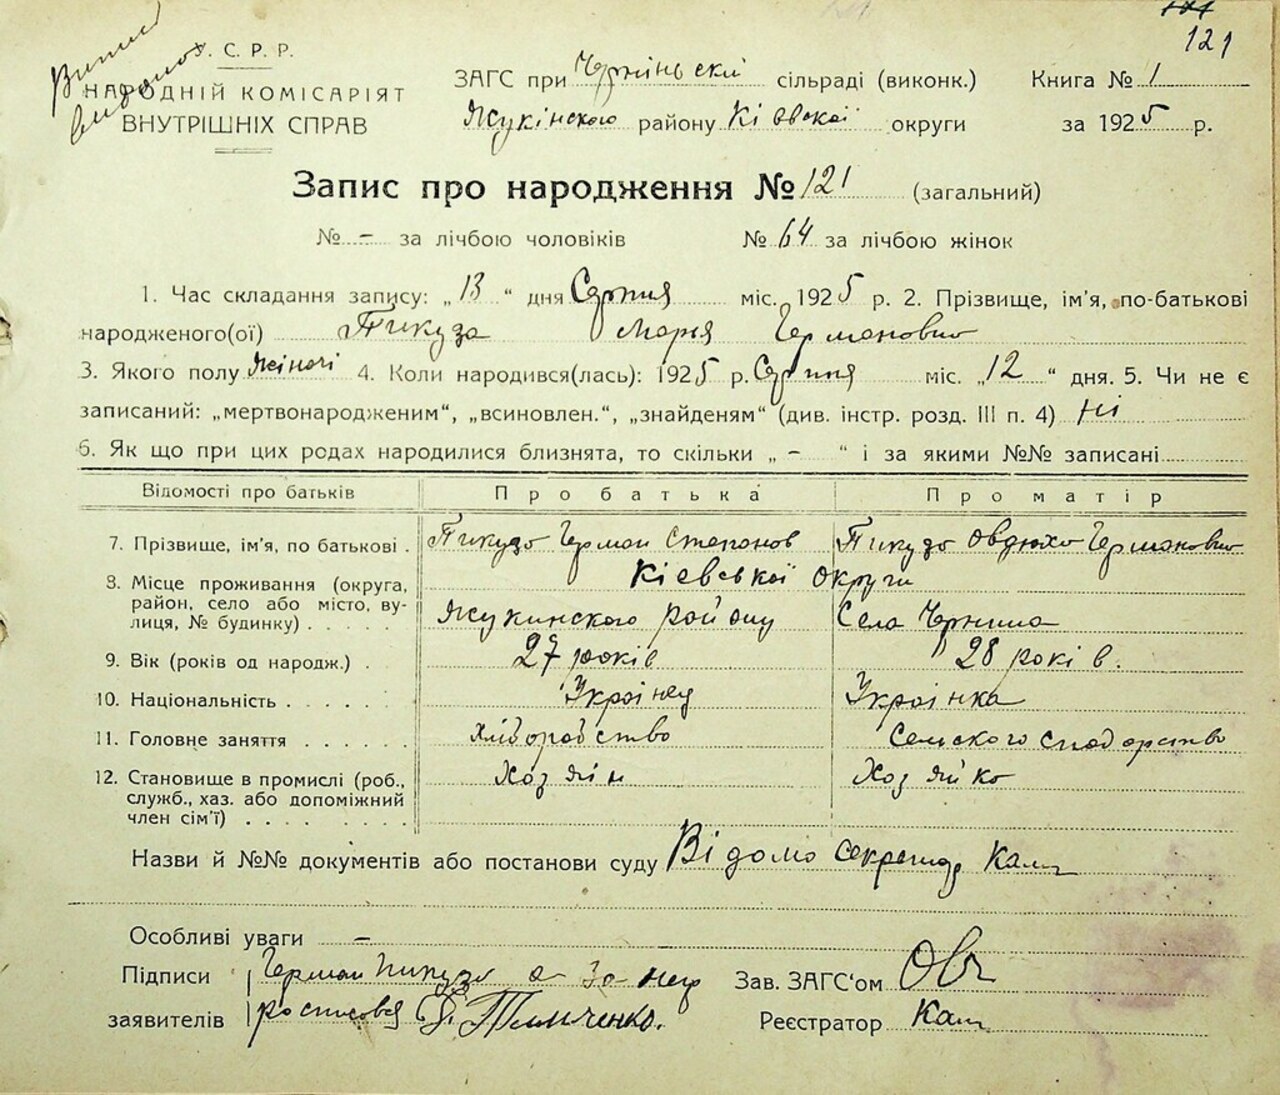 121
У. С. Р. Р.
НАРОДНІЙ КОМІСАРІЯТ
ВНУТРІШНІХ СПРАВ
ЗАГС при сільраді (виконк.) Книга № 1
району Кіевскої округи за 1925 р.
Запис про народження № 121 (загальний)
№ - за лічбою чоловіків № 64 за лічбою жінок
1. Час складання запису: „13“ дня Серпня міс. 1925 р. 2. Прізвище, ім'я, по-батькові
народженого(ої) Пикуза Марія Германовно
3. Якого полу жіночі 4. Коли народився(лась): 1925 р. Серпня міс. „12“ дня. 5. Чи не є
записаний: „мертвонародженим“, „всиновлен.“, „знайденям“ (див. інстр. розд. III п. 4) ні
6. Як що при цих родах народилися близнята, то скільки „ - “ і за якими №№ записані
Відомості про батьків Про батька Про матір
7. Прізвище, ім'я, по батькові . Пикузо Герман Степанов Пикузо Овдюхо Германовно
Кіевської округи
8. Місце проживання (округа,
район, село або місто, ву-
лиця, № будинку) . . . . . району Села
9. Вік (років од народж.) . 27 років 28 років.
10. Національність . . . . . . Українец Українка
11. Головне заняття . . . . . . хліборобство Сельского
12. Становище в промислі (роб.,
служб., хаз. або допоміжний
член сім'ї) . . . . . . . . Хозяїн Хозяйко
Назви й №№ документів або постанови суду Відомо секретар
Особливі уваги -
Підписи Герман Пикузо а за нег Зав. ЗАГС'ом
заявителів росписовся Реєстратор